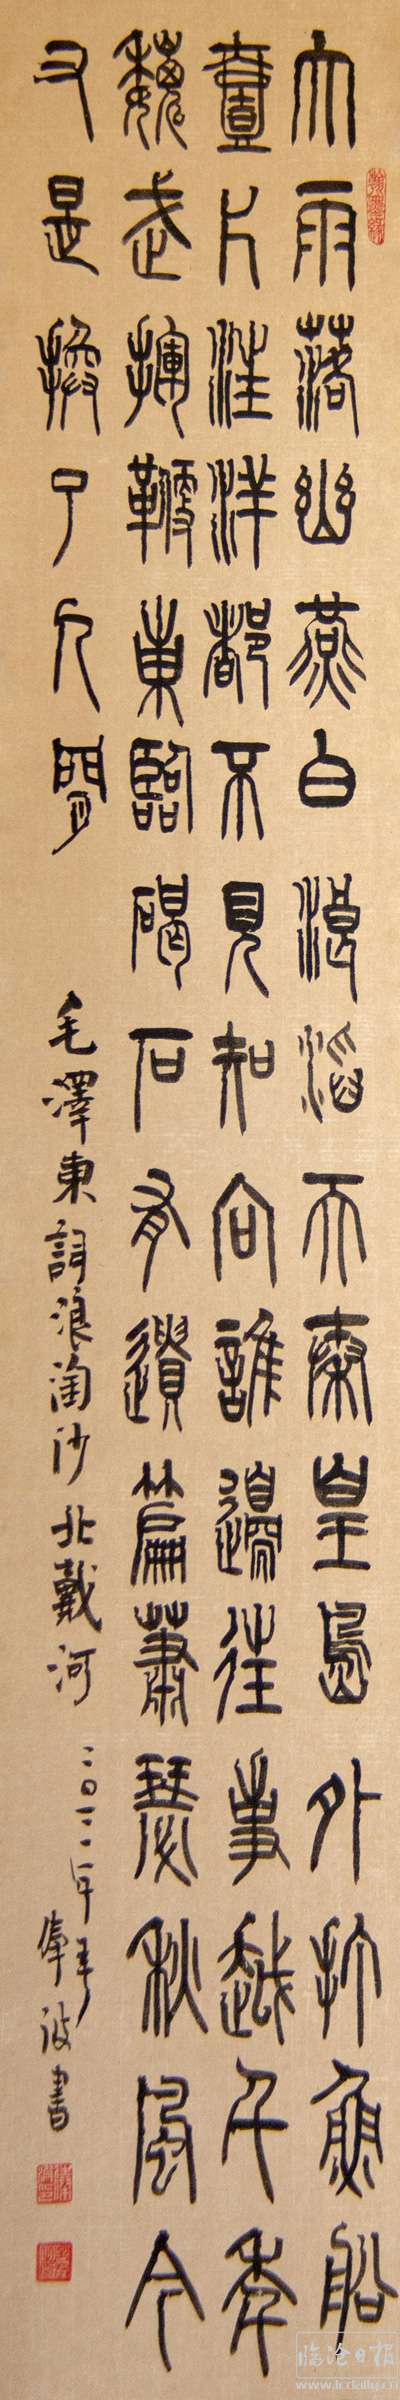 大雨落幽燕白浪滔天秦皇島外打魚船
壹片汪洋都不見知向誰邊往事越千年
魏武揮鞭東臨碣石有遺篇蕭瑟秋風今
又是換了人間
毛澤東詞浪淘沙北戴河
二〇一一年 波書
临沧日报
www.lcdaily.cn